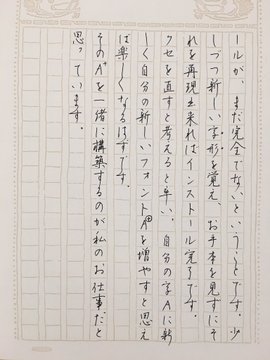 ールが、まだ完全でないということです。少
しづつ新しい字形を覚え、お手本を見ずにそ
れを再現出来ればインストール完了です。
クセを直すと考えると辛い。自分の字Aに新
しく自分の新しいフォントA⁺を増やすと思え
ば楽しくなるはずです。
そのA⁺を一緒に構築するのが私のお仕事だと
思っています。